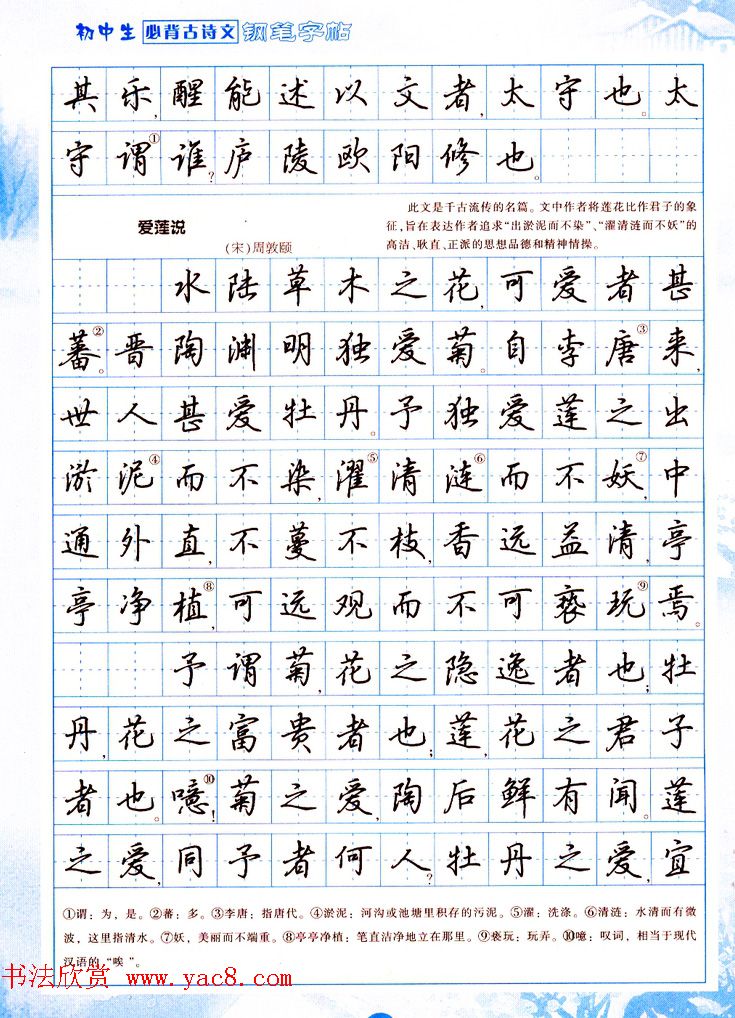 初中生必背古诗文钢笔字帖
其乐,醒能述以文者,太守也。太
守谓①谁?庐陵欧阳修也。
爱莲说
(宋)周敦颐
此文是千古流传的名篇。文中作者将莲花比作君子的象
征,旨在表达作者追求“出淤泥而不染”、“濯清涟而不妖”的
高洁、耿直、正派的思想品德和精神情操。
水陆草木之花,可爱者甚
蕃②。晋陶渊明独爱菊。自李唐③来,
世人甚爱牡丹。予独爱莲之出
淤泥④而不染,濯⑤清涟⑥而不妖⑦,中
通外直,不蔓不枝,香远益清,亭
亭净植⑧,可远观而不可亵玩⑨焉。
予谓菊,花之隐逸者也;牡
丹,花之富贵者也;莲,花之君子
者也。噫⑩!菊之爱,陶后鲜有闻。莲
之爱,同予者何人?牡丹之爱,宜
①谓:为,是。②蕃:多。③李唐:指唐代。④淤泥:河沟或池塘里积存的污泥。⑤濯:洗涤。⑥清涟:水清而有微
波,这里指清水。⑦妖,美丽而不端重。⑧亭亭净植:笔直洁净地立在那里。⑨亵玩:玩弄。⑩噫:叹词,相当于现代
汉语的“唉”。
书法欣赏 www.yac8.com